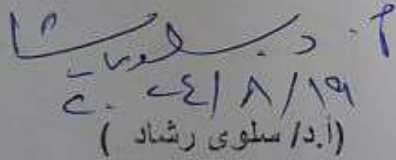 أ.د. سلوى رشاد
٢٠٢٤/٨/١٩
(أ.د/ سلوى رشاد )